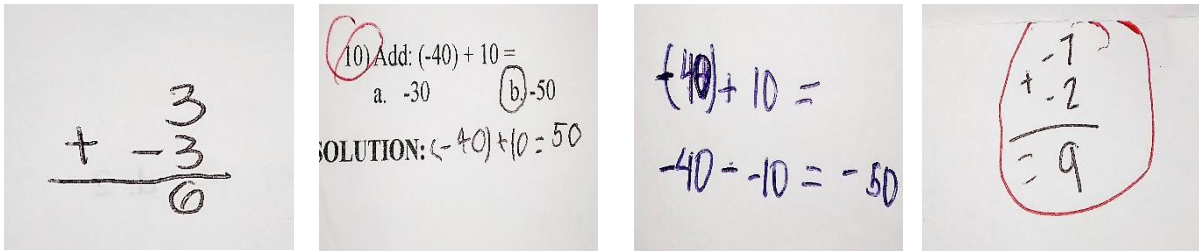 3
+ -3
6
10) Add: (-40) + 10 =
a. -30 b. -50
SOLUTION: (-40) + 10 = 50
(-40) + 10 =
-40 - -10 = -50
-7
+ -2
= 9